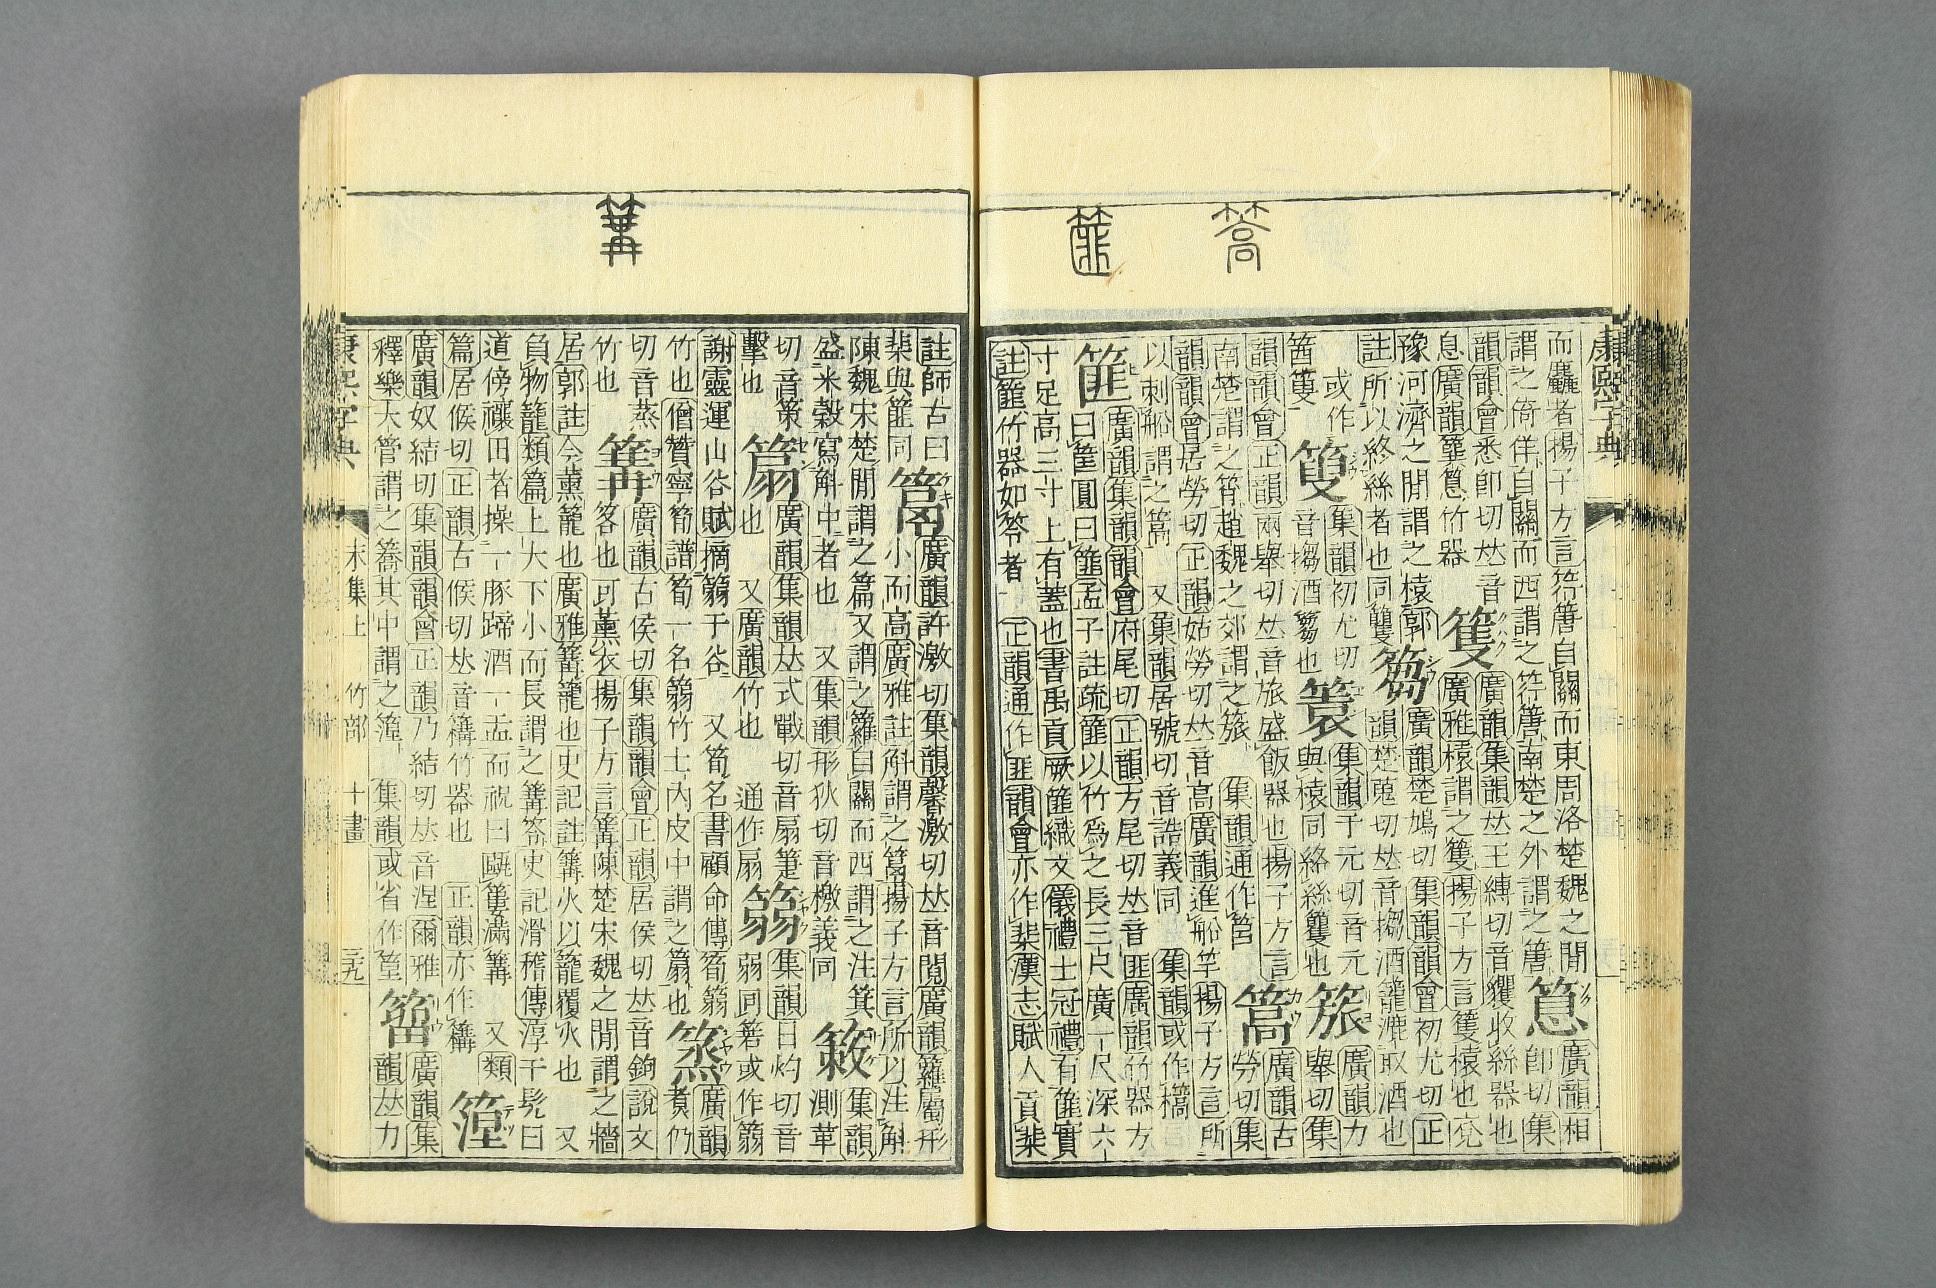 篙
篚
康熙字典
而麤者揚子方言符簹自關而東周洛楚魏之閒䈡廣韻相
謂之倚佯自關而西謂之符簹南楚之外謂之簹卽切集
韻韻會悉卽切𠀤音篗廣韻集韻𠀤王縛切音籰收絲器也
息廣韻䈡竹器廣雅榬謂之篗揚子方言篗榬也兗
豫河濟之閒謂之榬郭篘廣韻楚鳩切集韻韻會初尤切正
註所以終絲者也同籰韻楚蒐切𠀤音搊酒籠漉取酒也
或作集韻初尤切集韻于元切音元廣韻力
簍音搊酒篘也與榬同絡絲籰也舉切集
韻韻會正韻兩舉切𠀤音旅盛飯器也揚子方言篙廣韻古
南楚謂之筲趙魏之郊謂之集韻通作筥勞切集
韻韻會居勞切正韻姑勞切𠀤音高廣韻進船竿揚子方言所
以刺船謂之篙又集韻居號切音誥義同集韻或作
篚廣韻集韻韻會府尾切正韻方尾切𠀤音匪廣韻竹器方
曰筐圓曰篚孟子註疏篚以竹爲之長三尺廣一尺深六
寸足高三寸上有蓋也書禹貢厥篚織文儀禮士冠禮有篚實
註篚竹器如笭者正韻通作匪韻會亦作棐漢志賦入貢棐
篝
註師古曰廣韻許激切集韻馨激切𠀤音䦧廣韻籮屬形
棐與篚同小而高廣雅註斛謂之揚子方言所以注斛
陳魏宋楚閒謂之篇又謂之籮自關而西謂之注箕簎集韻
盛米穀寫斛中者也又集韻形狄切音檄義同測革
切音策䈉廣韻集韻𠀤式戰切音扇箑篛集韻日灼切音
擊也也又廣韻竹也通作扇弱同箬或作篛
謝靈運山谷賦摘篛于谷又筍名書顧命傳筍篛䉄廣韻
竹也僧贊寧筍譜筍一名篛竹士內皮中謂之也煑仍
切音蒸篝廣韻古侯切集韻韻會正韻居侯切𠀤音鉤說文
竹也笿也可薰衣揚子方言篝陳楚宋魏之閒謂之牆
居郭註今薰籠也廣雅篝籠也史記註篝火以籠覆火也又
負物籠類篇上大下小而長謂之篝笿史記滑稽傳淳于髠曰
道傍禳田者操一豚蹄酒一盂而祝曰甌窶滿篝又類
篇居候切正韻古候切𠀤音構竹器也正韻亦作
廣韻奴結切集韻韻會正韻乃結切𠀤音涅爾雅廣韻集
釋樂大管謂之簥其中謂之篞集韻或省作韻𠀤力
康熙字典 未集上 竹部 十畫 三九